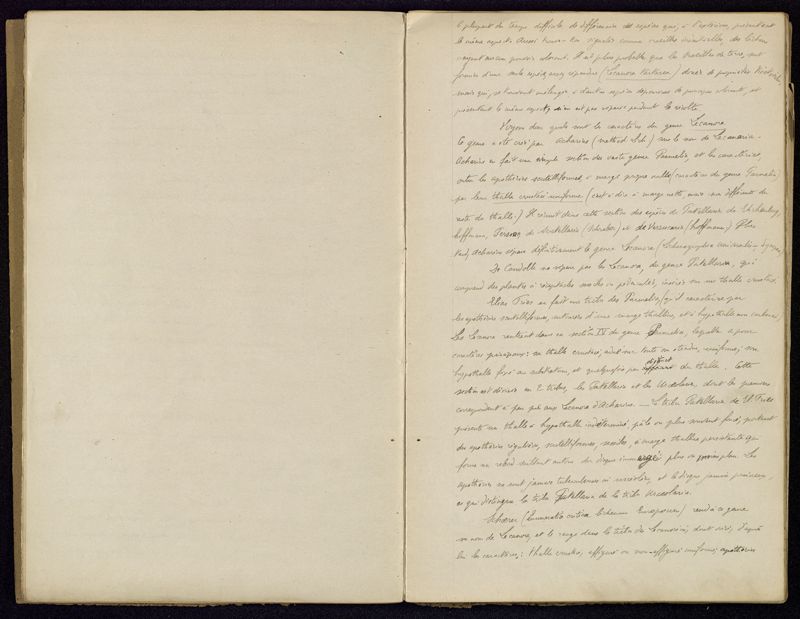 la plupart du temps difficile de différencier des espèces que, à l'extérieur, présentent
le même aspect. Aussi trouve-t-on signalés comme orseilles des lichens
n'ayant aucun pouvoir colorant. Il est plus probable que les orseilles de terre, sont
formées d'une seule espèce, assez répandue (Lecanora tartarea) douée de propriétés
mais qui, se trouvant mélangée à d'autres espèces dépourvues de principe colorant, et
présentant le même aspect, n'en est pas séparée pendant la récolte.
Voyons donc quels sont les caractères du genre Lecanora.
Ce genre a été créé par Acharius (method. Lich.) sous le nom de Lecanaria.
Acharius en fait une simple section du vaste genre Parmelia, et les caractérise,
outre les apothécies scutelliformes, à marge propre nulle (caractère du genre Parmelia)
par leur thalle crustacé uniforme (c'est à dire à marge nette, mais non différente du
reste du thalle.) Il réunit dans cette section des espèces de Patellaria de Ehrhart,
Hoffmann, Persoon, de Scutellaria (Schreber) et de Verrucaria (Hoffmann.) Plus
tard, Acharius sépare définitivement le genre Lecanora (Lichenographia universalis, Synopsis)
De Candolle ne sépare pas les Lecanora, du genre Patellaria, qui
comprend des plantes à réceptacles sessiles ou pédiculés, insérés sur un thalle crustacé.
Elias Fries en fait une tribu des Parmelia, (qu'il caractérise par
les apothécies scutelliformes, entourées d'une marge thalline, et à hypothalle non charbonneux)
Les Lecanora rentrent dans sa section IV du genre Parmelia, laquelle a pour
caractères principaux: un thalle crustacé, adné sur toute son étendue, uniforme; un
hypothalle fixé au substratum, et quelquefois par effet du thalle. Cette
section est divisée en 2 tribus, les Patellaria et les Urceolaria, dont les premières
correspondent à peu près aux Lecanora d'Acharius. — La tribu Patellaria de El. Fries
présente un thalle à hypothalle indéterminé, pâle ou plus souvent foncé, portant
des apothécies régulières, scutelliformes, sessiles, à marge thalline persistante qui
forme un rebord saillant autour du disque immergé plus ou moins plan. Les
apothécies ne sont jamais tuberculeuses ni urcéolées, et le disque jamais pruineux,
ce qui distingue la tribu Patellaria de la tribu Urceolaria.
Schaerer (Enumeratio critica lichenum Europaeorum) rend à ce genre
son nom de Lecanora, et le range dans la tribu des Lecanorées, dont voici, d'après
lui les caractères: thalle crustacé, effiguré ou non-effiguré uniforme; apothécies